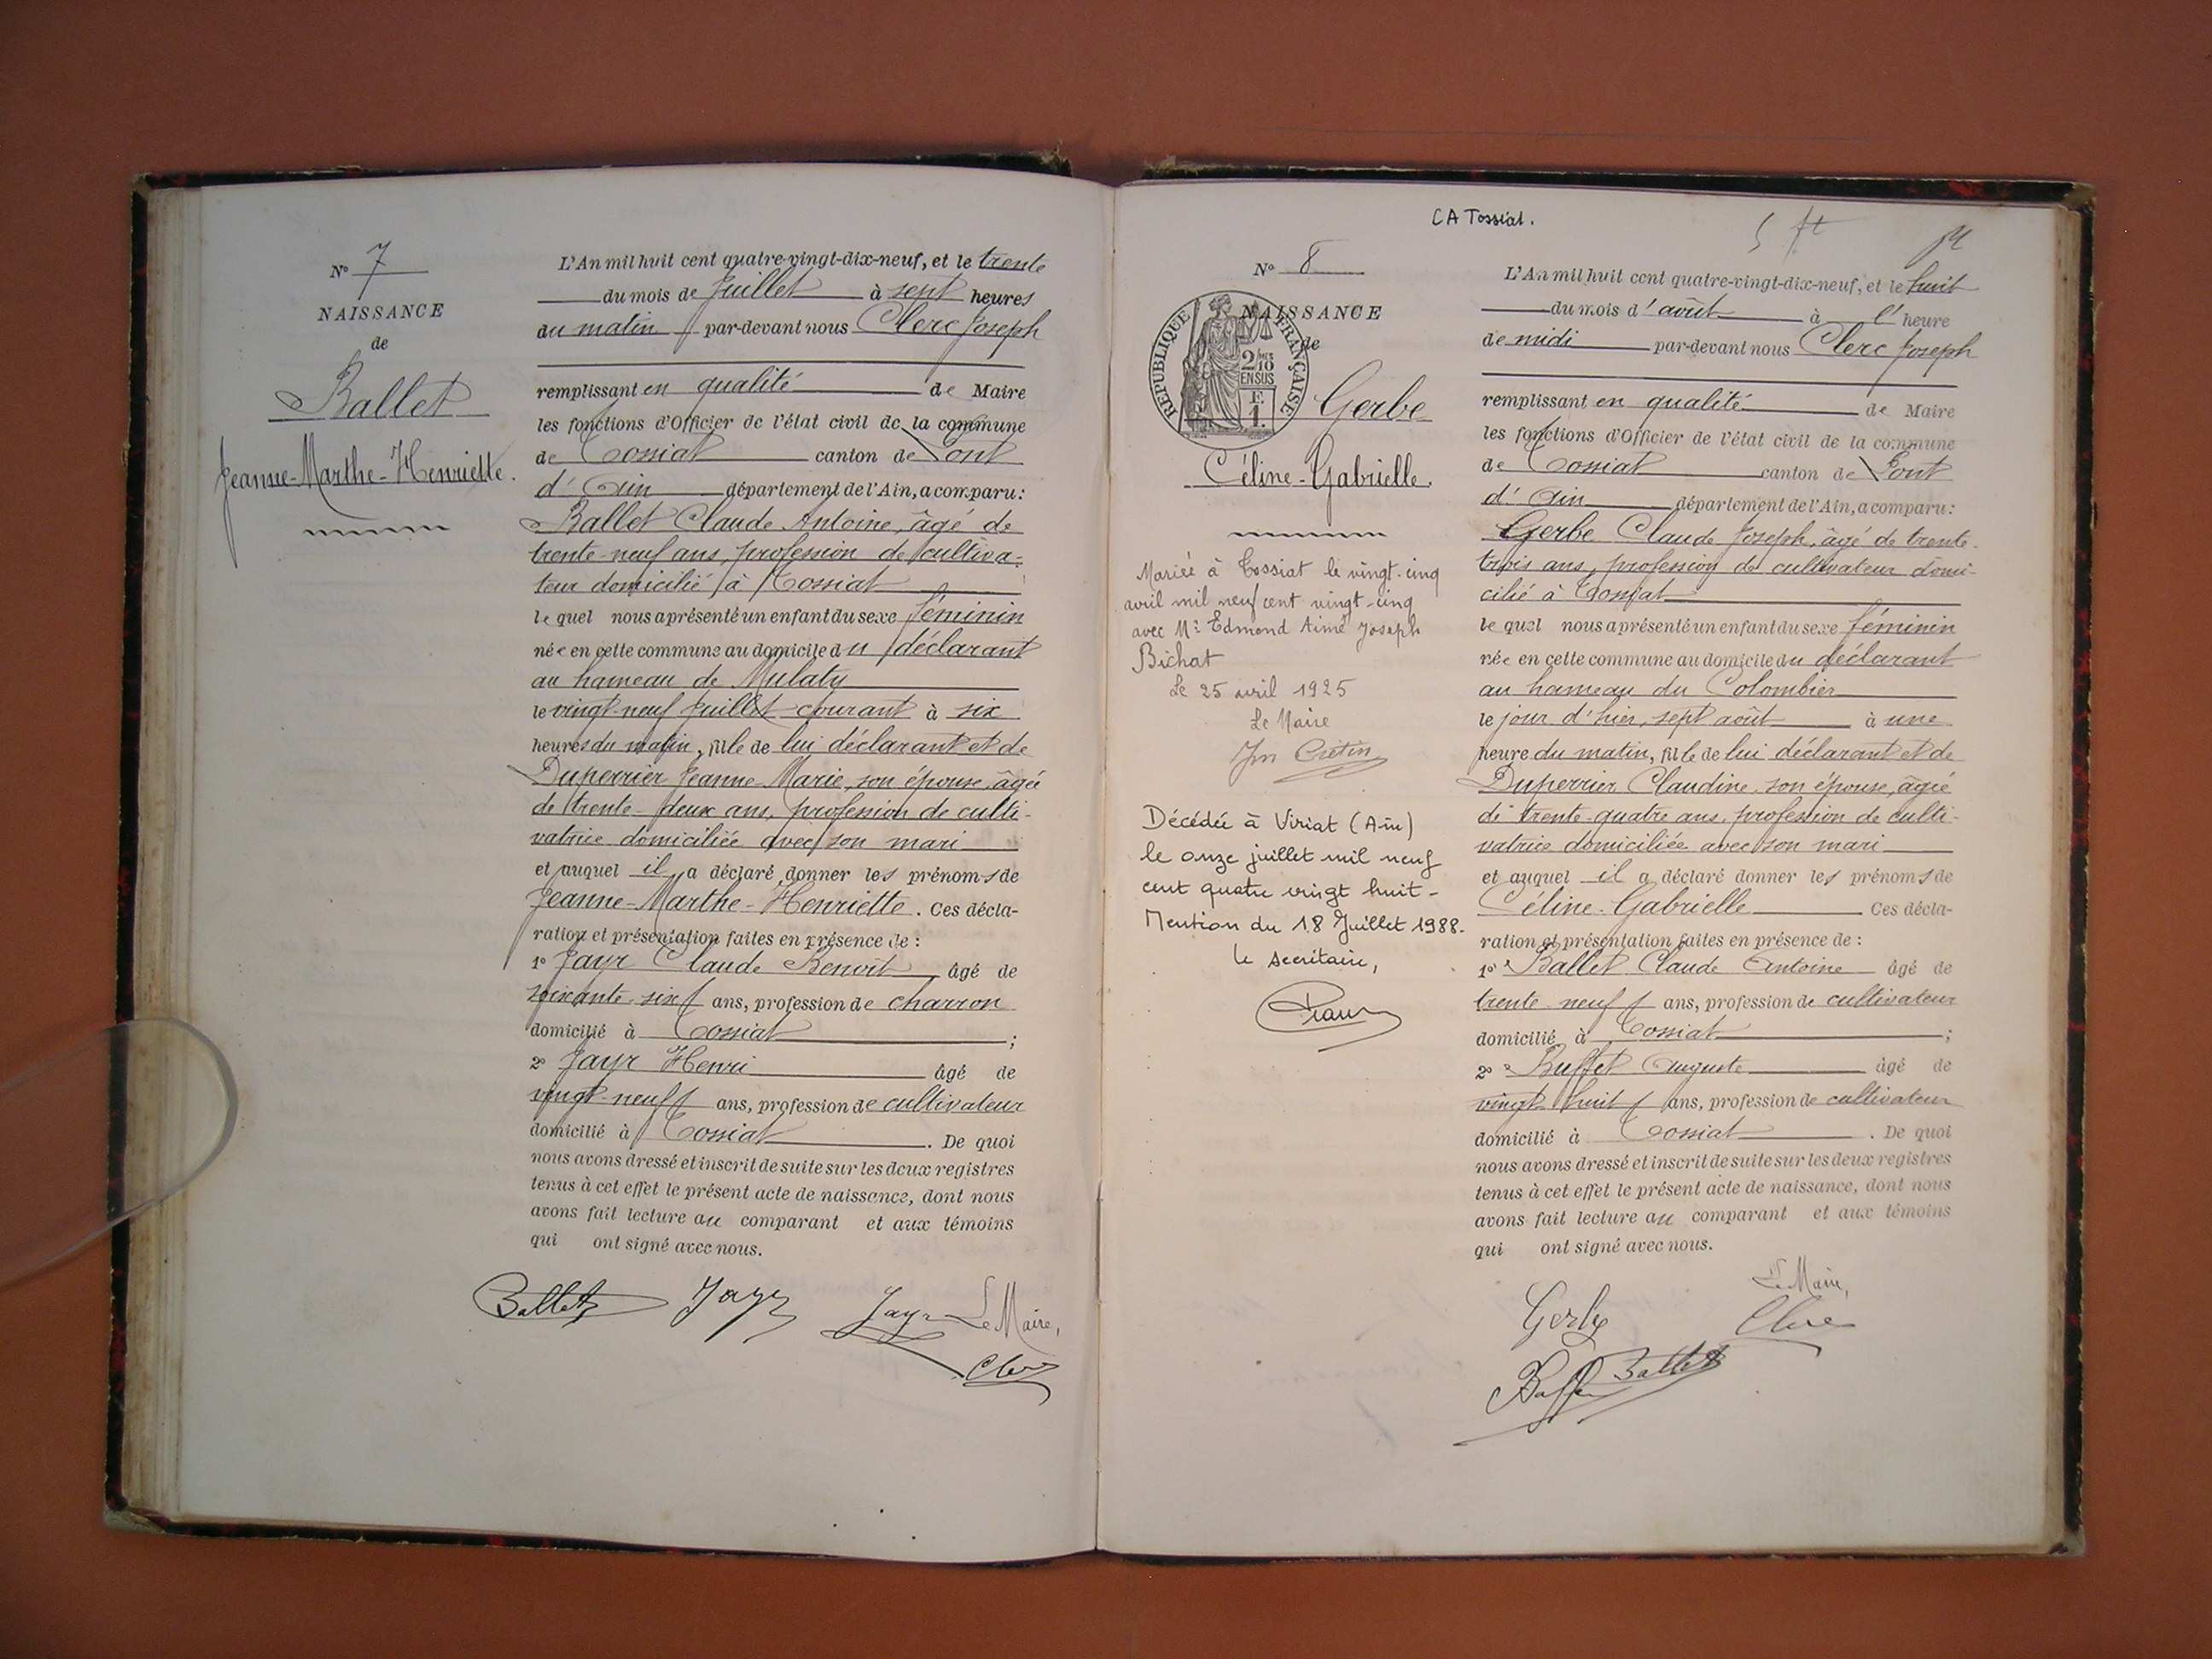 N° 7
NAISSANCE
de
Ballet
Jeanne-Marthe-Henriette.
L'An mil huit cent quatre-vingt-dix-neuf, et le trente
du mois de Juillet à sept heures
du matin par-devant nous Clerc Joseph
remplissant en qualité de Maire
les fonctions d'Officier de l'état civil de la commune
de Tossiat canton de Pont
d'Ain département de l'Ain, a comparu:
Ballet Claude Antoine, âgé de
trente-neuf ans, profession de cultiva-
teur domicilié à Tossiat
lequel nous a présenté un enfant du sexe féminin
née en cette commune au domicile du déclarant
au hameau de Mulaty
le vingt-neuf Juillet courant à six
heures du matin, fille de lui déclarant et de
Duperrier Jeanne Marie, son épouse, âgée
de trente-deux ans, profession de culti-
vatrice domiciliée avec son mari
et auquel il a déclaré donner les prénoms de
Jeanne-Marthe-Henriette. Ces décla-
ration et présentation faites en présence de :
1° Jayr Claude Benoît âgé de
soixante-six ans, profession de charron
domicilié à Tossiat ;
2° Jayr Henri âgé de
vingt-neuf ans, profession de cultivateur
domicilié à Tossiat . De quoi
nous avons dressé et inscrit de suite sur les deux registres
tenus à cet effet le présent acte de naissance, dont nous
avons fait lecture au comparant et aux témoins
qui ont signé avec nous.
Ballet Jayr Jayr Le Maire,
Clerc
CA Tossiat.
N° 8
NAISSANCE
de
RÉPUBLIQUE FRANÇAISE
2/10 MES
EN SUS
F.
1.
Gerbe
Céline-Gabrielle.
Mariée à Tossiat le vingt-cinq
avril mil neuf cent vingt-cinq
avec Mr Edmond Aimé Joseph
Bichat
Le 25 avril 1925
Le Maire
Crétin
Décédée à Viriat (Ain)
le onze juillet mil neuf
cent quatre vingt huit-
Mention du 18 Juillet 1988.
le secrétaire,
L'An mil huit cent quatre-vingt-dix-neuf, et le huit
du mois d'août à l' heure
de midi par-devant nous Clerc Joseph
remplissant en qualité de Maire
les fonctions d'Officier de l'état civil de la commune
de Tossiat canton de Pont
d'Ain département de l'Ain, a comparu:
Gerbe Claude Joseph, âgé de trente-
trois ans, profession de cultivateur domi-
cilié à Tossiat
lequel nous a présenté un enfant du sexe féminin
née en cette commune au domicile du déclarant
au hameau du Colombier
le jour d'hier, sept août à une
heure du matin, fille de lui déclarant et de
Duperrier Claudine son épouse, âgée
de trente-quatre ans, profession de culti-
vatrice domiciliée avec son mari
et auquel il a déclaré donner les prénoms de
Céline-Gabrielle Ces décla-
ration et présentation faites en présence de :
1° Ballet Claude Antoine âgé de
trente-neuf ans, profession de cultivateur
domicilié à Tossiat ;
2° Buffet Auguste âgé de
vingt-huit ans, profession de cultivateur
domicilié à Tossiat . De quoi
nous avons dressé et inscrit de suite sur les deux registres
tenus à cet effet le présent acte de naissance, dont nous
avons fait lecture au comparant et aux témoins
qui ont signé avec nous.
Le Maire,
Gerbe Clerc
Buffet Ballet